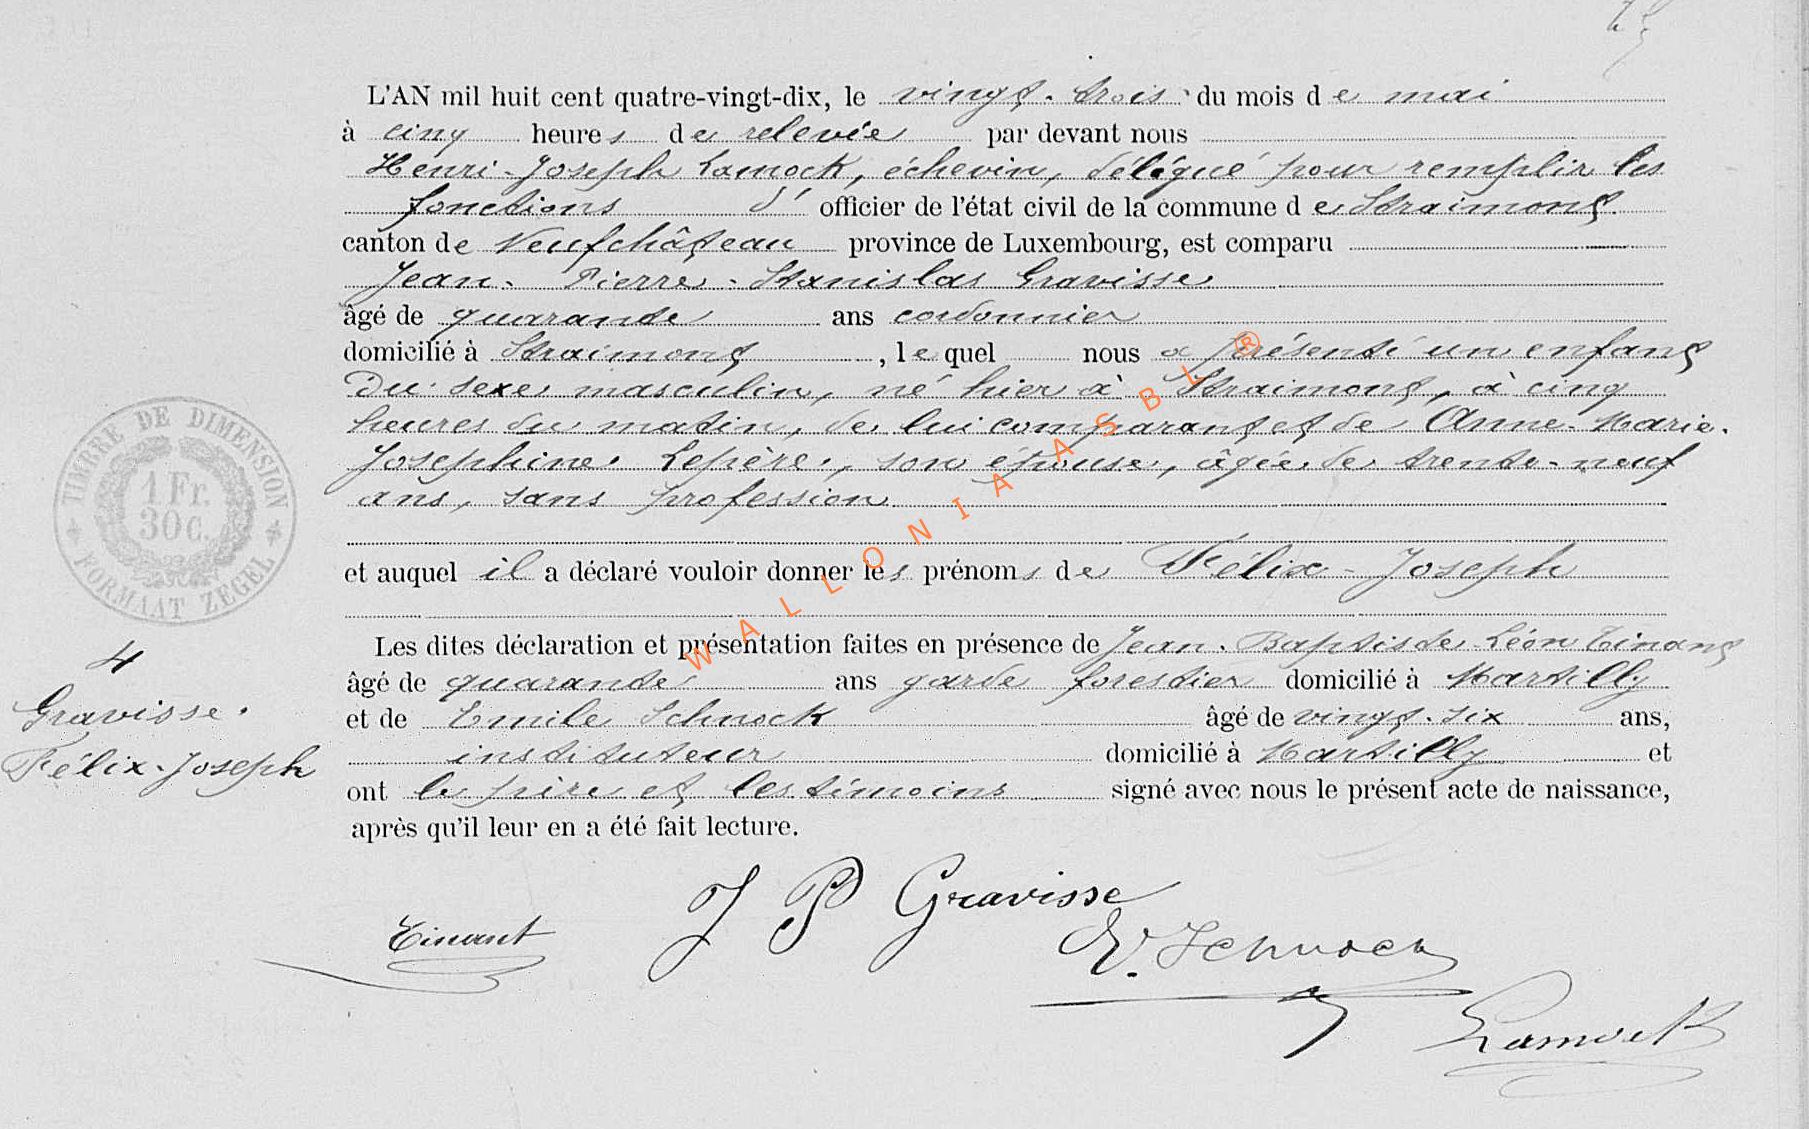 L'AN mil huit cent quatre-vingt-dix, le vingt-trois du mois de mai
à cinq heures de relevée par devant nous
Henri-Joseph Lamock, échevin, délégué pour remplir les
fonctions d' officier de l'état civil de la commune de Straimont
canton de Neufchâteau province de Luxembourg, est comparu
Jean-Pierre-Stanislas Gravisse
âgé de quarante ans cordonnier
domicilié à Straimont, lequel nous a présenté un enfant
du sexe masculin, né hier à Straimont, à cinq
heures du matin, de lui comparant et de Anne-Marie-
Josephine Lepère, son épouse, âgée de trente-neuf
ans, sans profession
et auquel il a déclaré vouloir donner les prénoms de Félix-Joseph
Les dites déclaration et présentation faites en présence de Jean-Baptiste-Léon Tinant
âgé de quarante ans garde forestier domicilié à Martilly
et de Emile Schnock âgé de vingt-six ans,
instituteur domicilié à Martilly et
ont le père et les témoins signé avec nous le présent acte de naissance,
après qu'il leur en a été fait lecture.
TIMBRE DE DIMENSION
1 Fr.
30 c.
FORMAAT ZEGEL
4
Gravisse.
Félix-Joseph
WALLONIA ASBL ®
J P Gravisse
Tinant
E. Schnock
Lamock